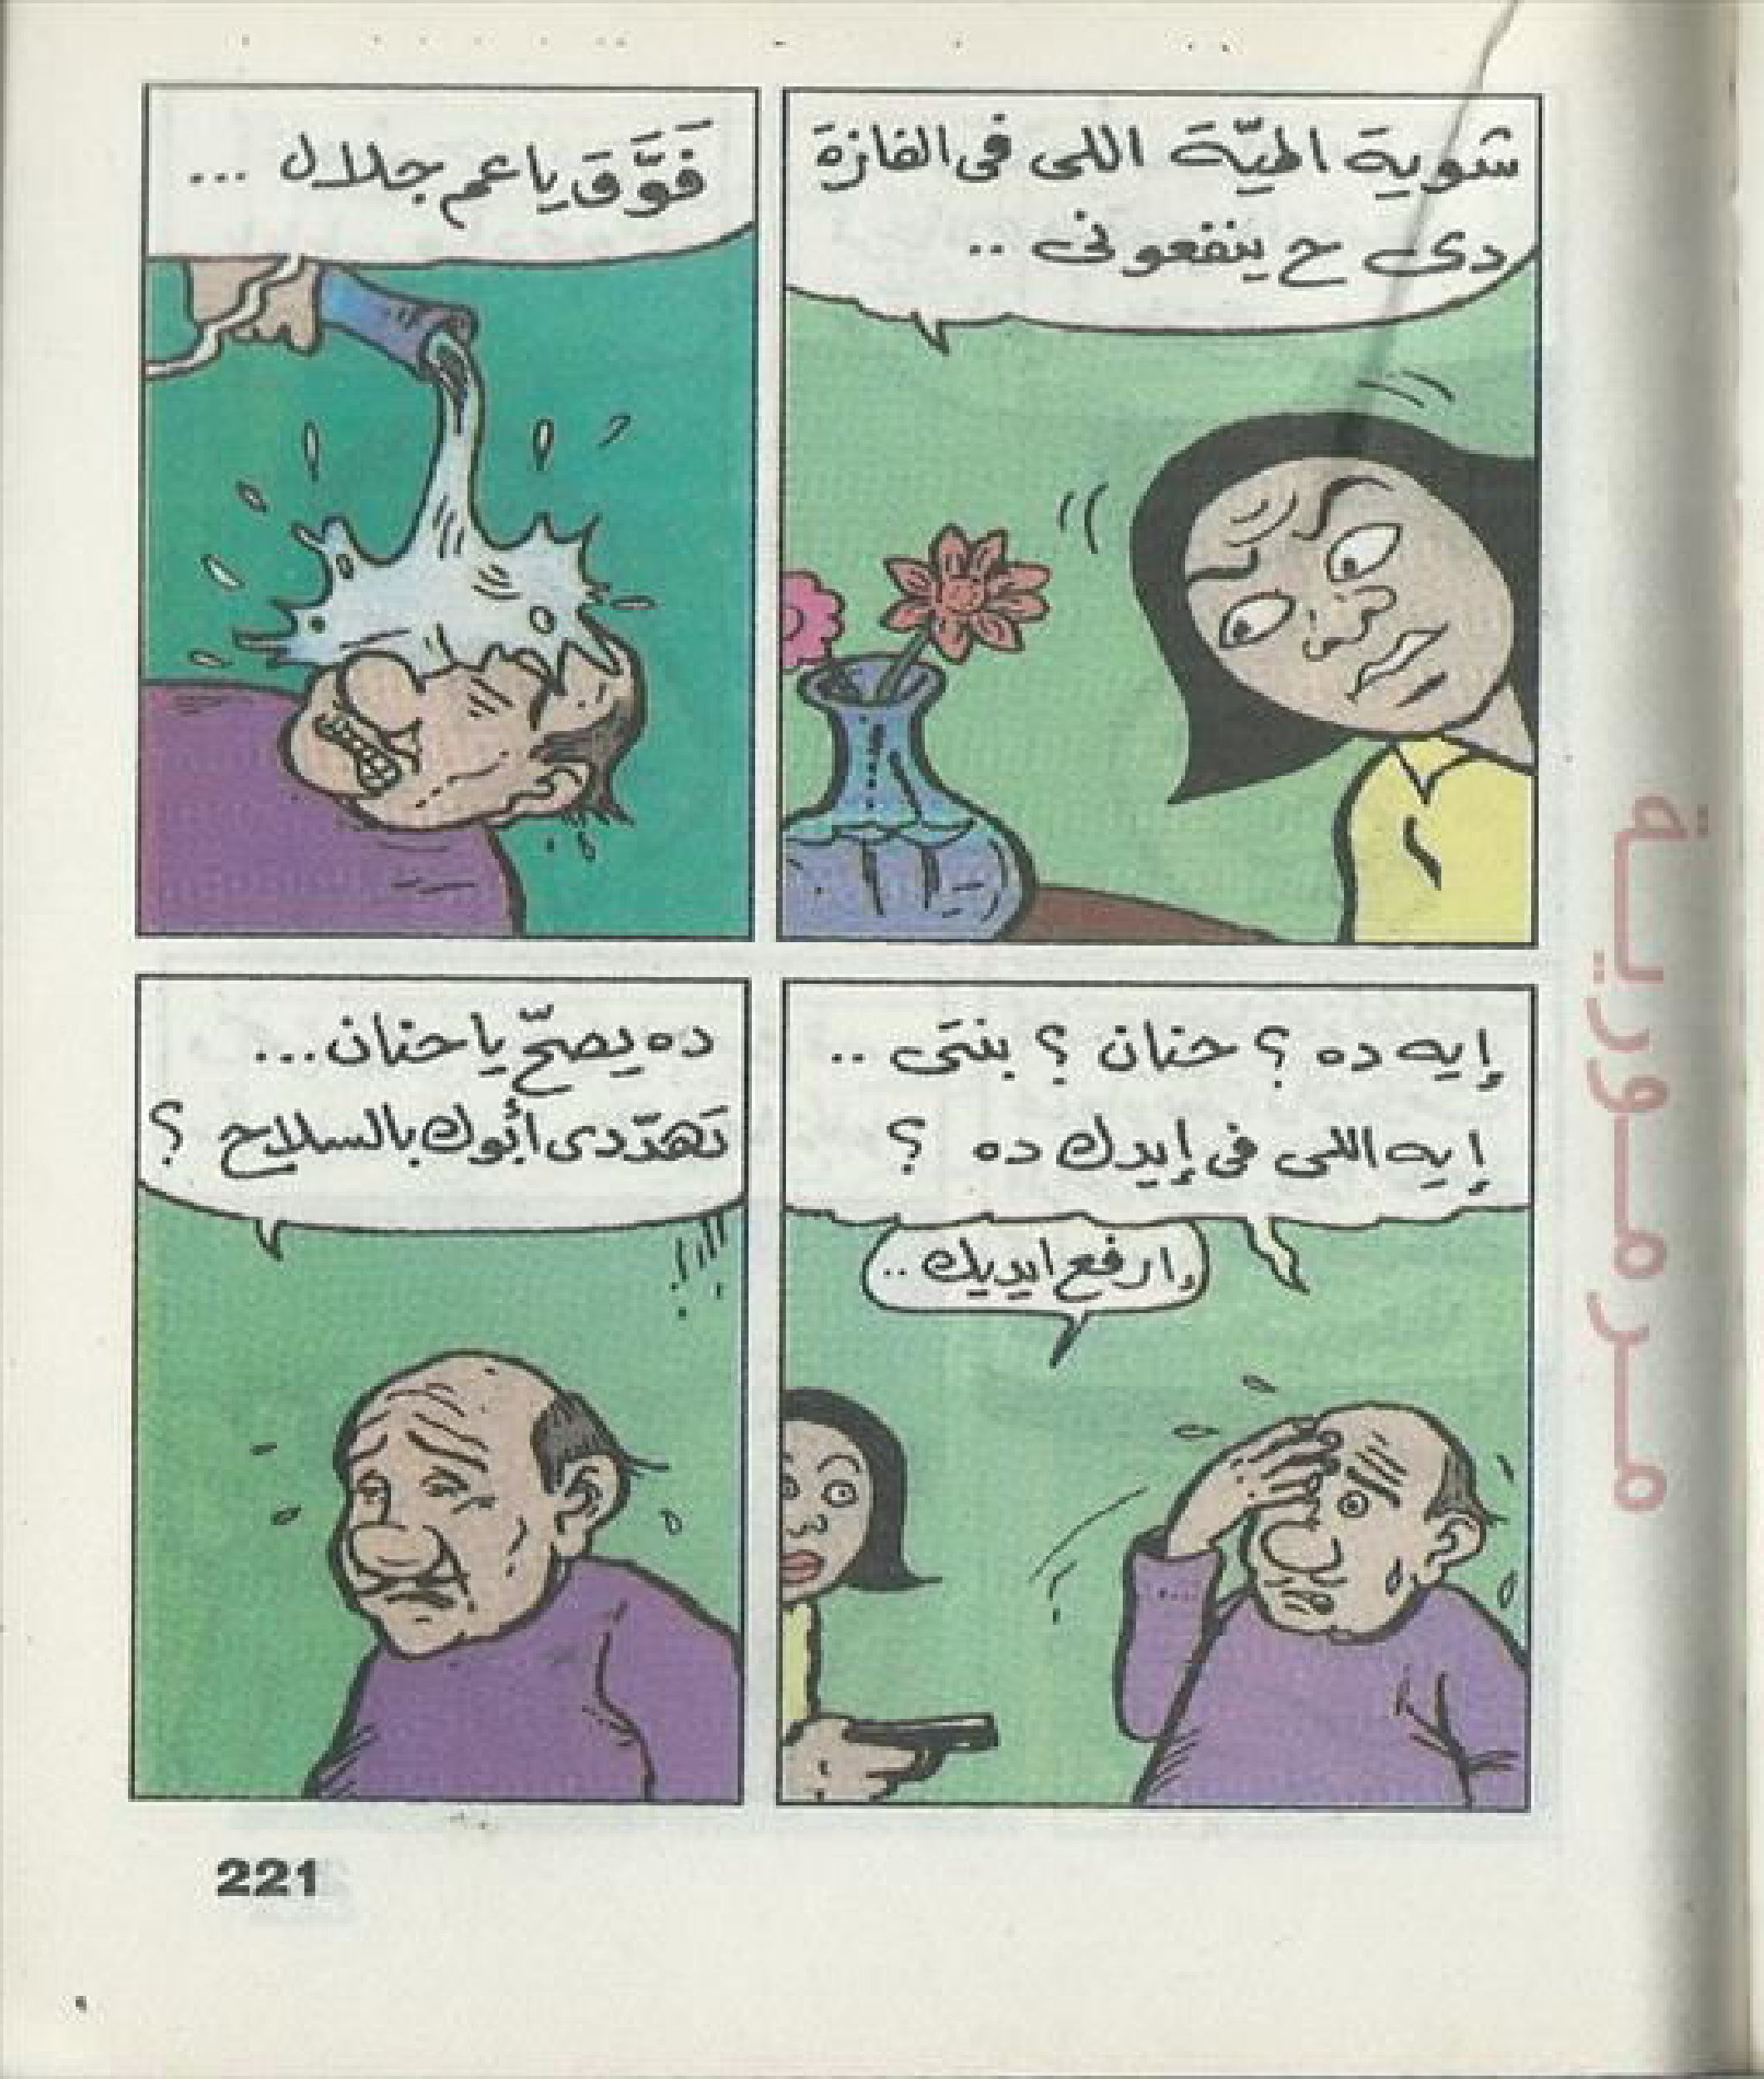 شوية الميّة اللى فى الفازة
دى ح ينفعونى ..
فَوَّقَ يا عم جلال ...
إيه ده ؟ حنان ؟ بنتى ..
إيه اللى فى إيدك ده ؟
ارفع ايديك ..
ده يصحّ يا حنان ...
تَهدّدى أبوك بالسلاح ؟
مرمورية
221